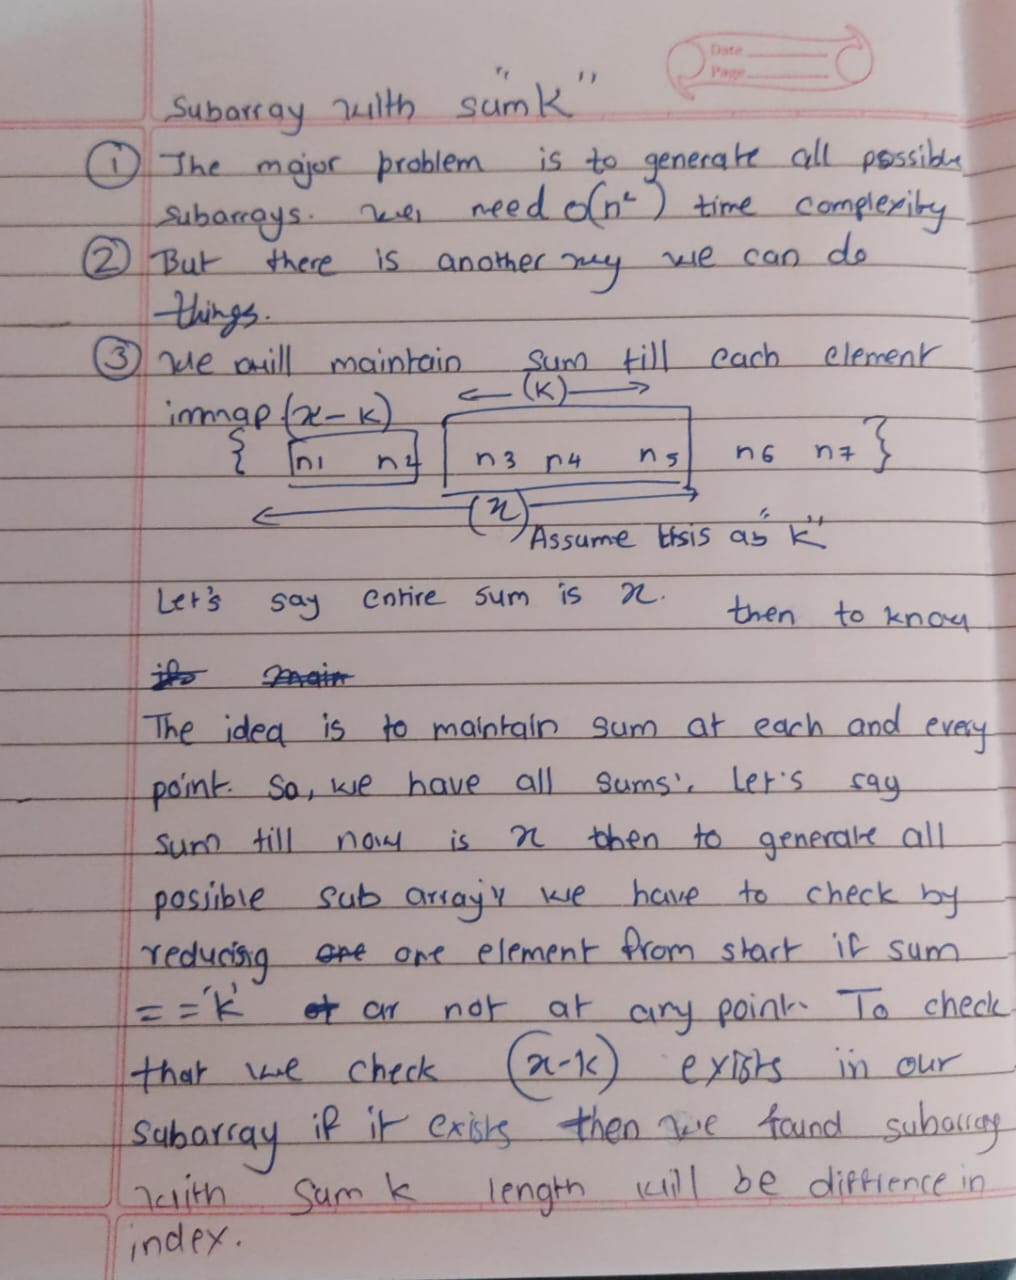 Date
Page
Subarray with "sum K"
① The major problem is to generate all possible
subarrays. we need o(n²) time complexity
② But there is another way we can do
things.
③ we will maintain sum till each element
(K)
inmap (x-k)
{ n1 n2 n3 n4 n5 n6 n7 }
(x)
Assume this as "K"
Let's say entire sum is x. then to know
The idea is to maintain sum at each and every
point. So, we have all sums'. Let's say
sum till now is x then to generate all
possible sub array's we have to check by
reducing one element from start if sum
== 'k' or not at any point. To check
that we check (x-k) exists in our
subarray if it exists then we found subarray
with sum k length will be diffrence in
index.